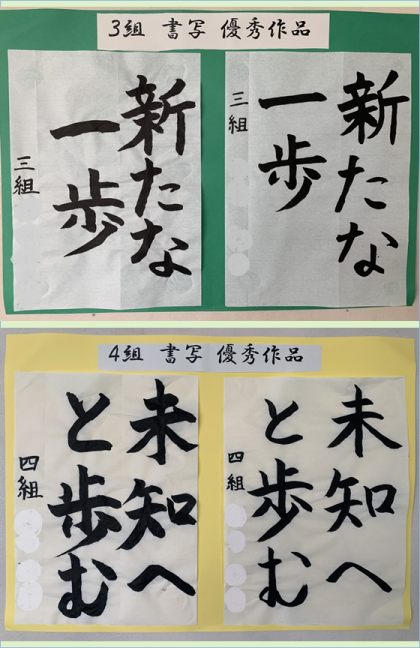 3組 書写 優秀作品
新たな
一歩
三組
新たな
一歩
三組
4組 書写 優秀作品
未知へ
と歩む
四組
未知へ
と歩む
四組